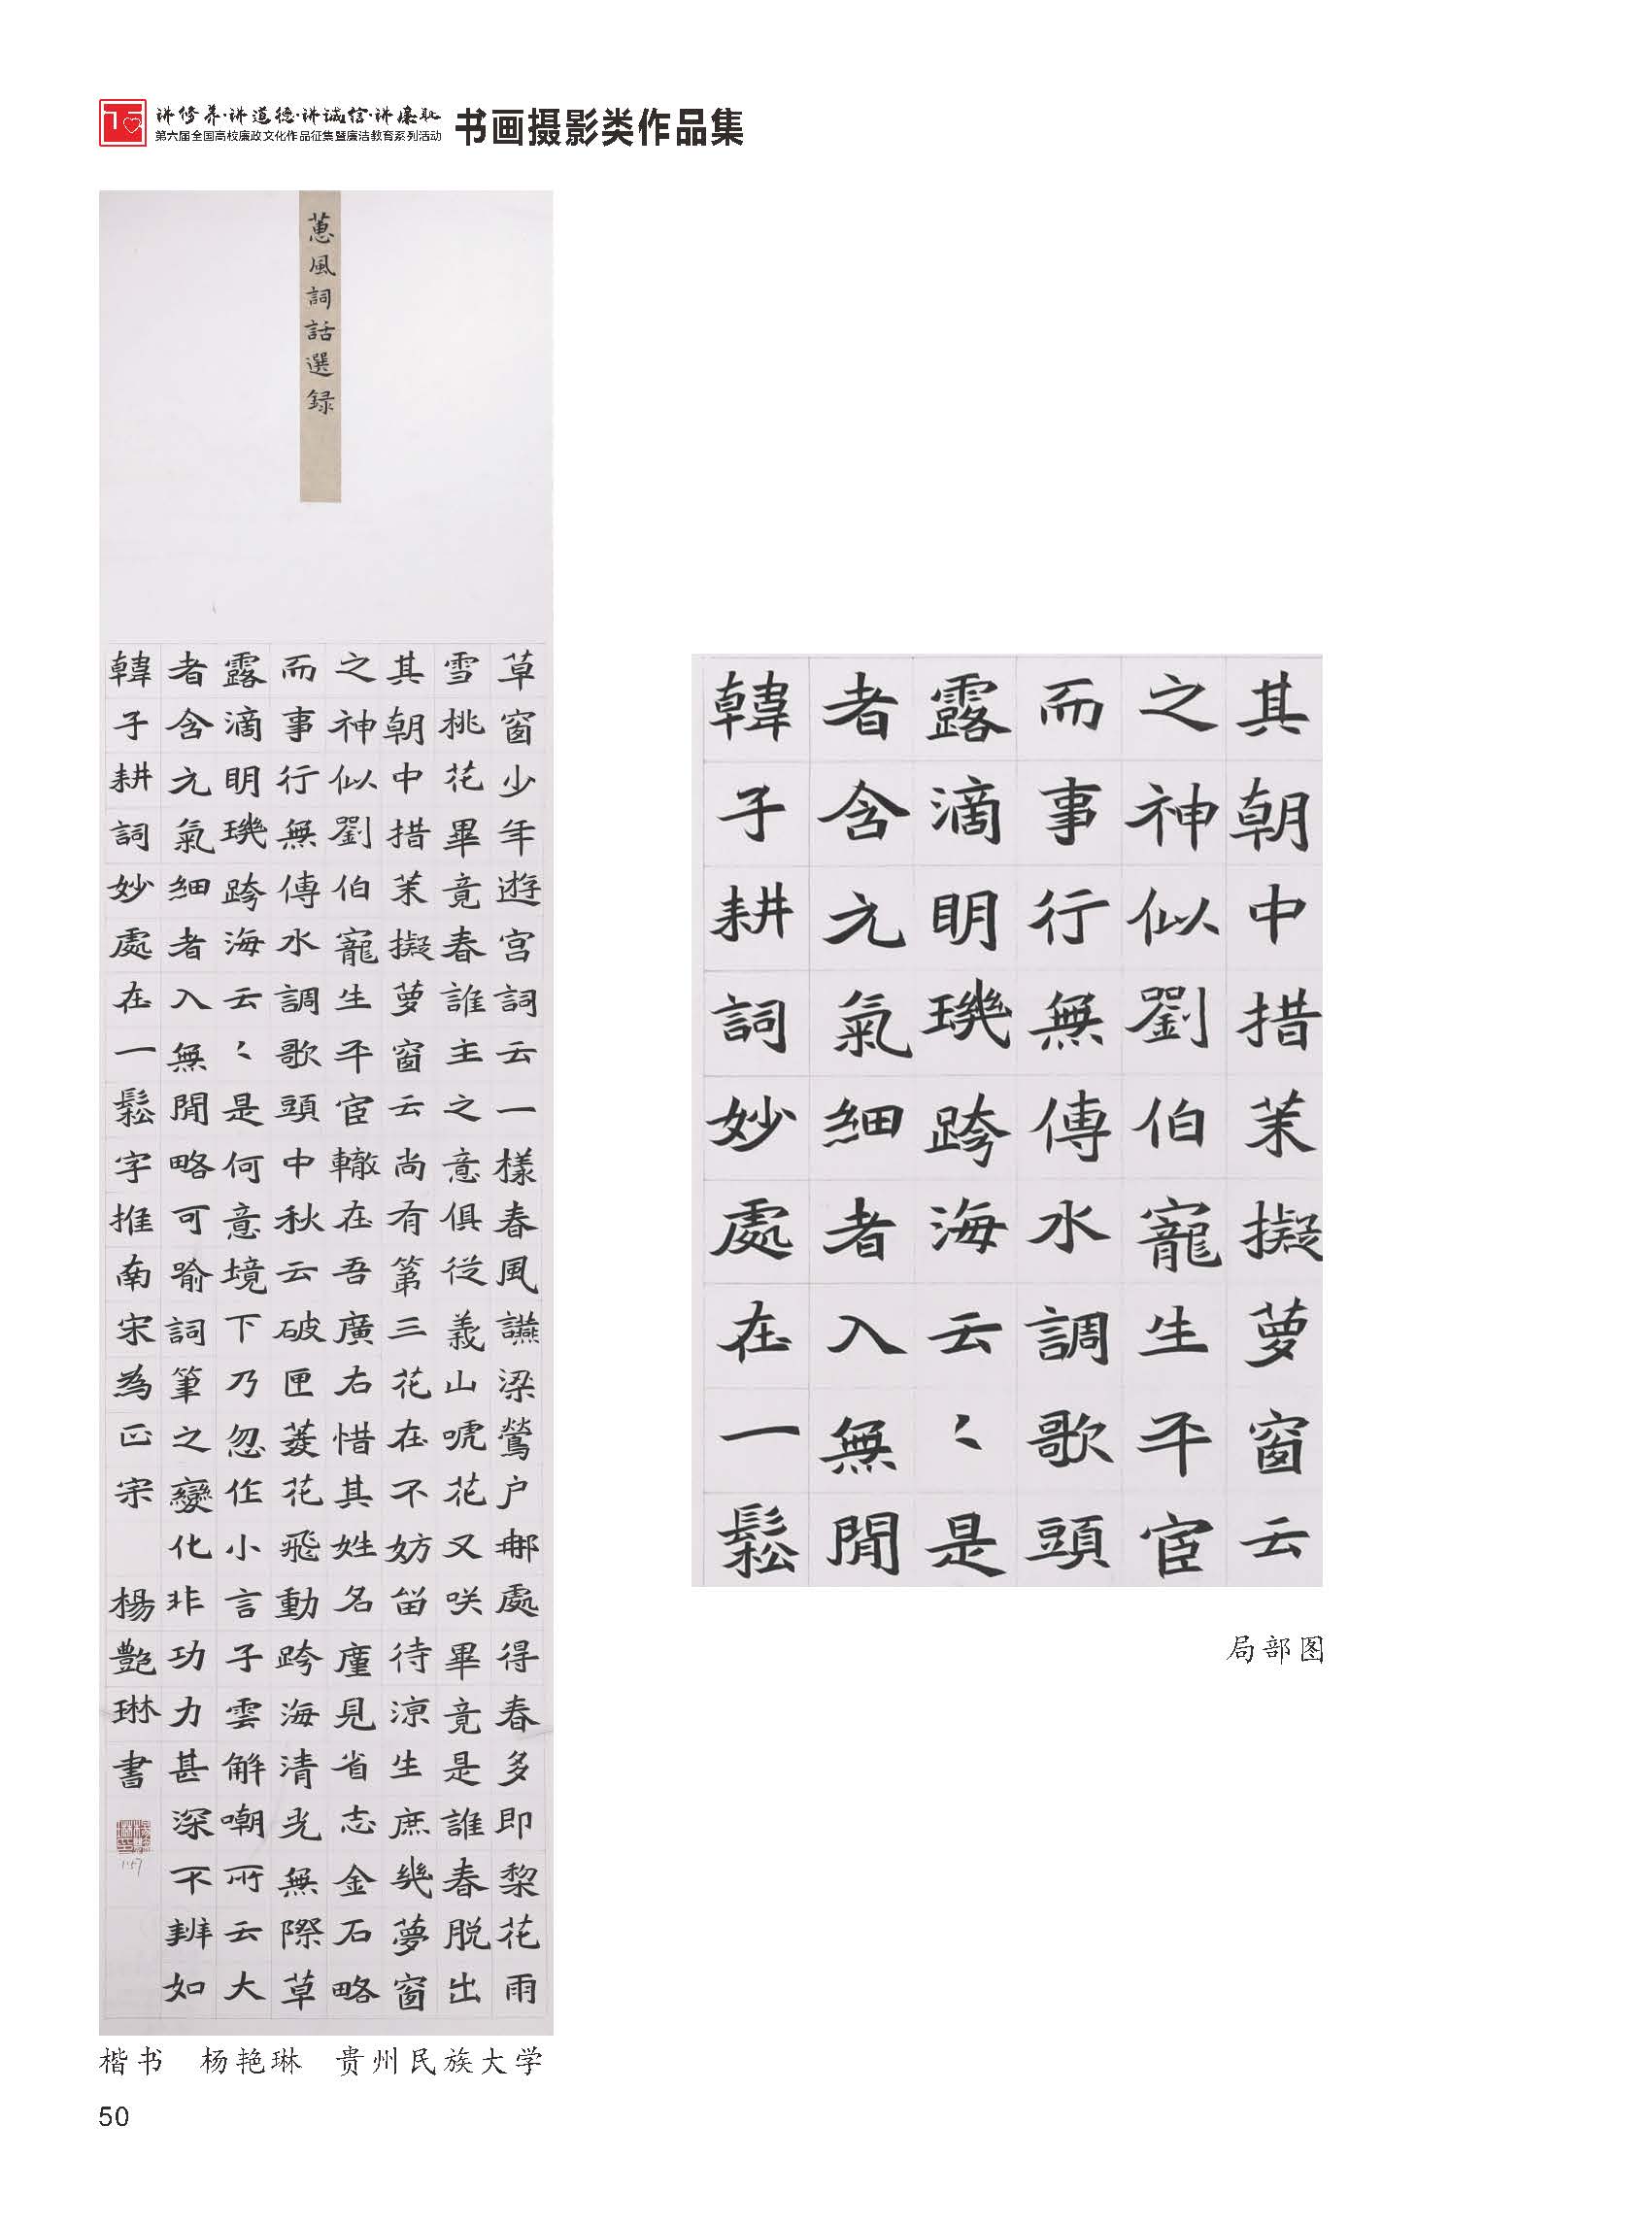 讲修养·讲道德·讲诚信·讲廉耻
第六届全国高校廉政文化作品征集暨廉洁教育系列活动
书画摄影类作品集
蕙風詞話選録
草窗少年遊宫詞云一樣春風讌梁鶯户那處得春多即梨花雨
雪桃花畢竟春誰主之意俱從義山唬花又咲畢竟是誰春脱出
其朝中措茉擬萝窗云尚有第三花在不妨畄待凉生庶幾夢窗
之神似劉伯寵生平宦轍在吾廣右惜其姓名廑見省志金石略
而事行無傳水調歌頭中秋云破匣菱花飛動跨海清光無際草
露滴明璣跨海云〻是何意境下乃忽作小言子雲解嘲所云大
者含元氣細者入無間略可喻詞筆之變化非功力甚深不辨如
韓子耕詞妙處在一鬆字推南宋為正宗 楊艷琳書
其朝中措茉擬萝窗云
之神似劉伯寵生平宦
而事行無傳水調歌頭
露滴明璣跨海云〻是
者含元氣細者入無間
韓子耕詞妙處在一鬆
局部图
楷书 杨艳琳 贵州民族大学
50